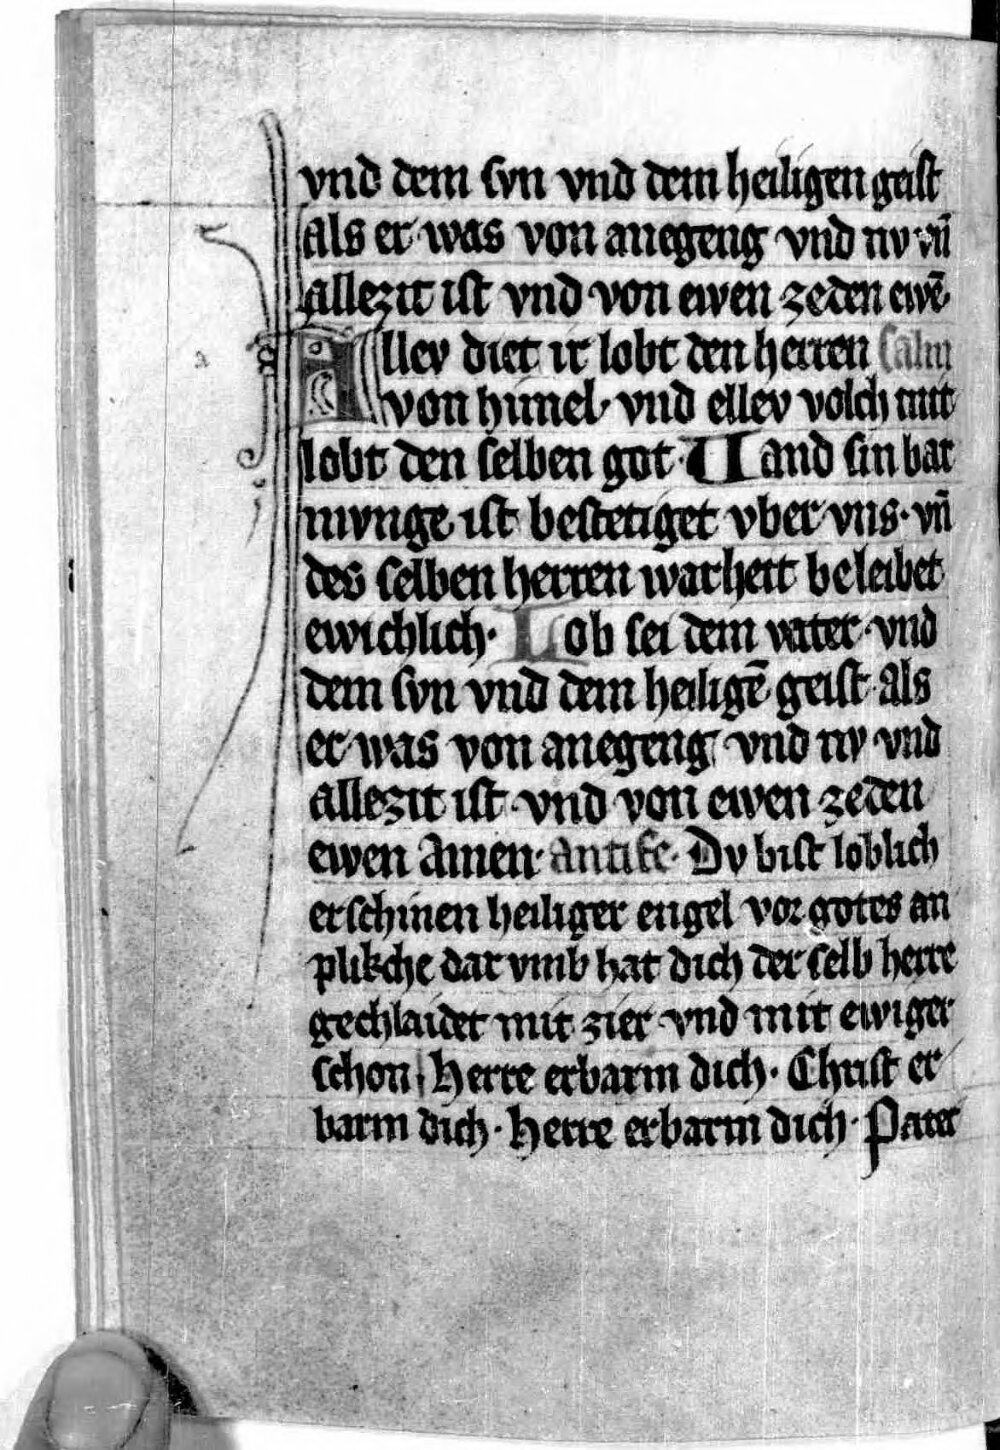 vnd dem svn vnd dem heiligen geist
als er was von anegeng vnd nv vn̄
allezit ist vnd von ewen zeden ewē
Allev diet ir lobt den herren salm
von himel vnd ellev volch mit
lobt den selben got · Wand sin bar
mvnge ist bestetiget vber vns · vn̄
des selben herren warheit beleibet
ewichlich · Lob sei dem vater vnd
dem svn vnd dem heiligē geist als
er was von anegeng vnd nv vnd
allezit ist vnd von ewen zeden
ewen Amen · antife · Dv bist loblich
erschinen heiliger engel vor gotes an
plikche dar vmb hat dich der selb herre
gechlaidet mit zier vnd mit ewiger
schon Herre erbarm dich · Christ er
barm dich · Herre erbarm dich · Pater